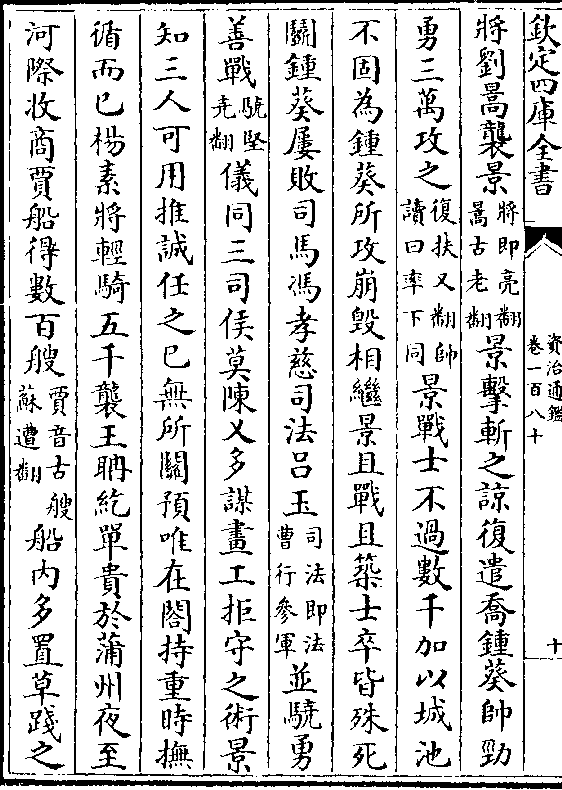 欽定四庫全書
資治通鑑
卷一百八十
十
將劉暠襲景將即亮翻暠古老翻景擊斬之諒復遣喬鍾葵帥勁
勇三萬攻之復扶又翻帥讀曰率下同景戰士不過數千加以城池
不固為鍾葵所攻崩毁相繼景且戰且築士卒皆殊死
鬬鍾葵屢敗司馬馮孝慈司法吕玉司法即法曹行參軍並驍勇
善戰驍堅堯翻儀同三司侯莫陳乂多謀畫工拒守之術景
知三人可用推誠任之已無所關預唯在閤持重時撫
循而已楊素將輕騎五千襲王聃紇單貴於蒲州夜至
河際收商賈船得數百艘賈音古艘蘇遭翻船内多置草踐之